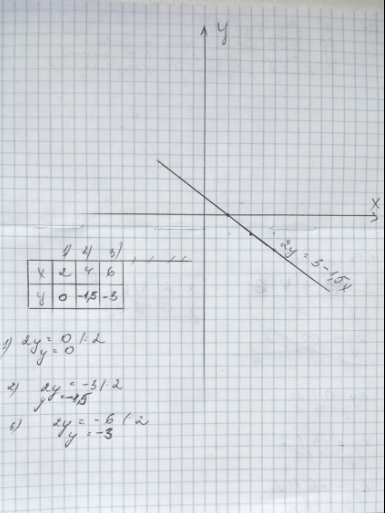 y
x
2y = 3-1,5x
1) 2) 3)
x 2 4 6
y 0 -1,5 -3
1) 2y = 0 |:2
y = 0
2) 2y = -3 |:2
y = -1,5
3) 2y = -6 |:2
y = -3